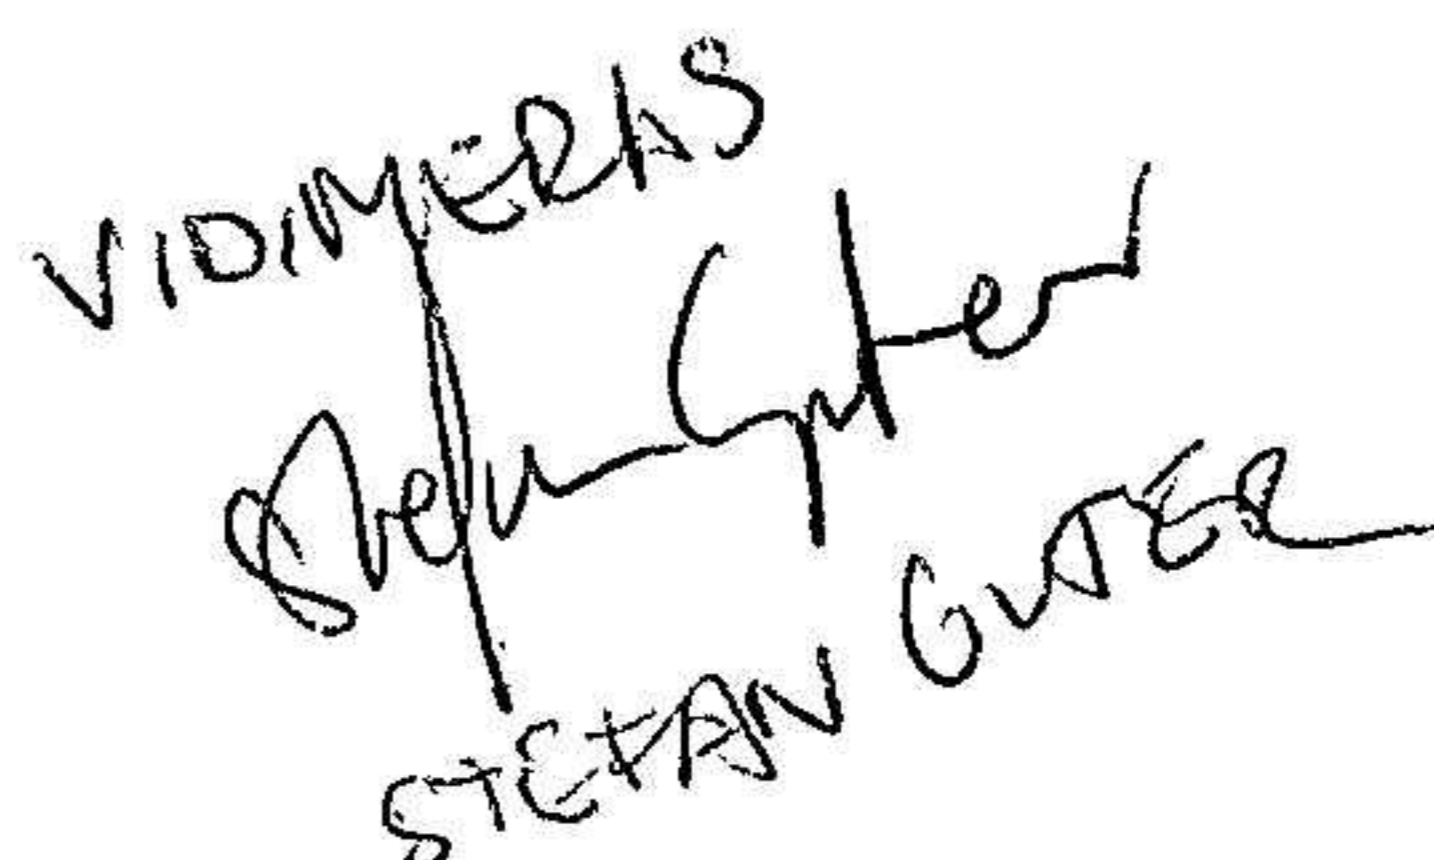 VIDIMERAS
Stefan Guter
STEFAN GUTER